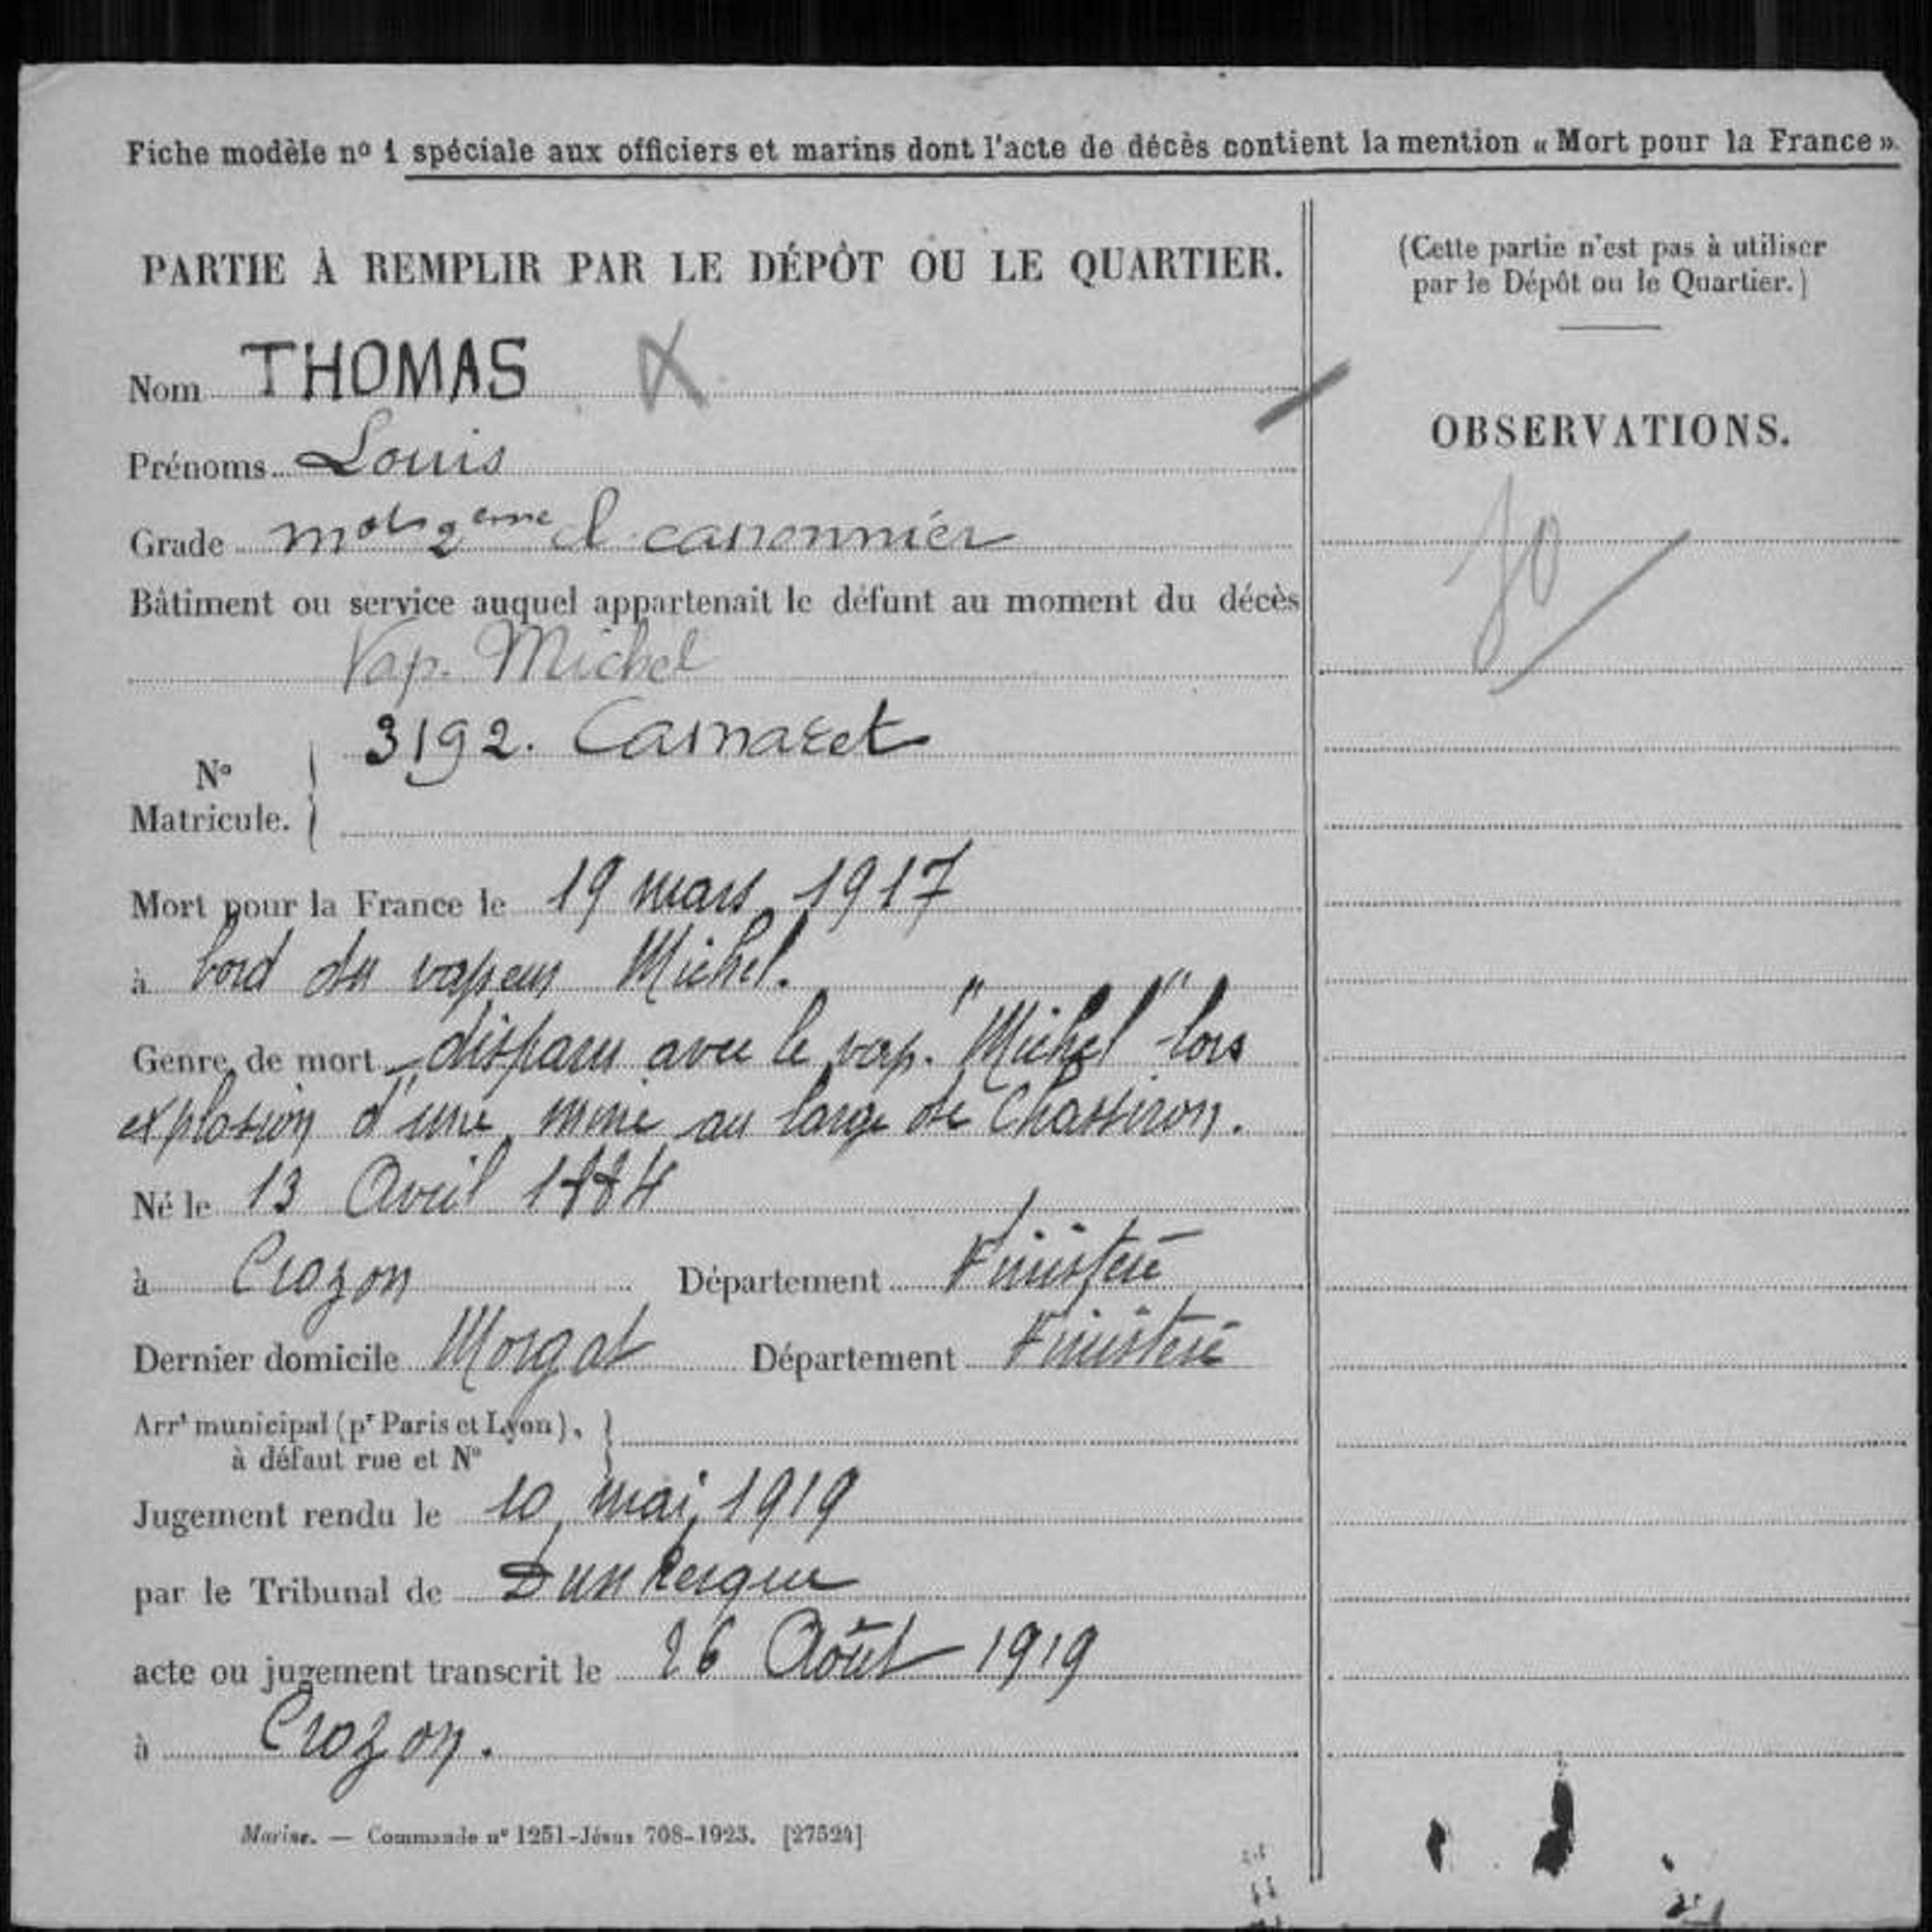 Fiche modèle nº 1 spéciale aux officiers et marins dont l'acte de décès contient la mention « Mort pour la France ».
PARTIE À REMPLIR PAR LE DÉPÔT OU LE QUARTIER.
Nom THOMAS
Prénoms Louis
Grade mot 2eme cl canonnier
Bâtiment ou service auquel appartenait le défunt au moment du décès
Vap. Michel
Nº Matricule. 3192. Camaret
Mort pour la France le 19 mars 1917
à bord du vapeur Michel.
Genre de mort disparu avec le vap. "Michel" lors
explosion d'une mine au large de Chassiron.
Né le 13 Avril 1884
à Crozon Département Finistère
Dernier domicile Morgat Département Finistère
Arrt municipal (pr Paris et Lyon),
à défaut rue et Nº
Jugement rendu le 10 mai 1919
par le Tribunal de Dunkerque
acte ou jugement transcrit le 26 Août 1919
à Crozon.
Marine. — Commande nº 1251-Jésus 708-1923. [27524]
(Cette partie n'est pas à utiliser
par le Dépôt ou le Quartier.)
OBSERVATIONS.